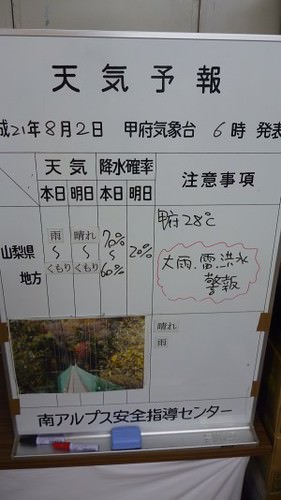 天気予報
成21年8月2日 甲府気象台 6時 発表
天気 降水確率 注意事項
本日 明日 本日 明日
山梨県
地方
雨 晴れ 70% 20%
〜 〜 〜
くもり くもり 60%
甲府 28℃
大雨、雷、洪水
警報
晴れ
雨
南アルプス安全指導センター